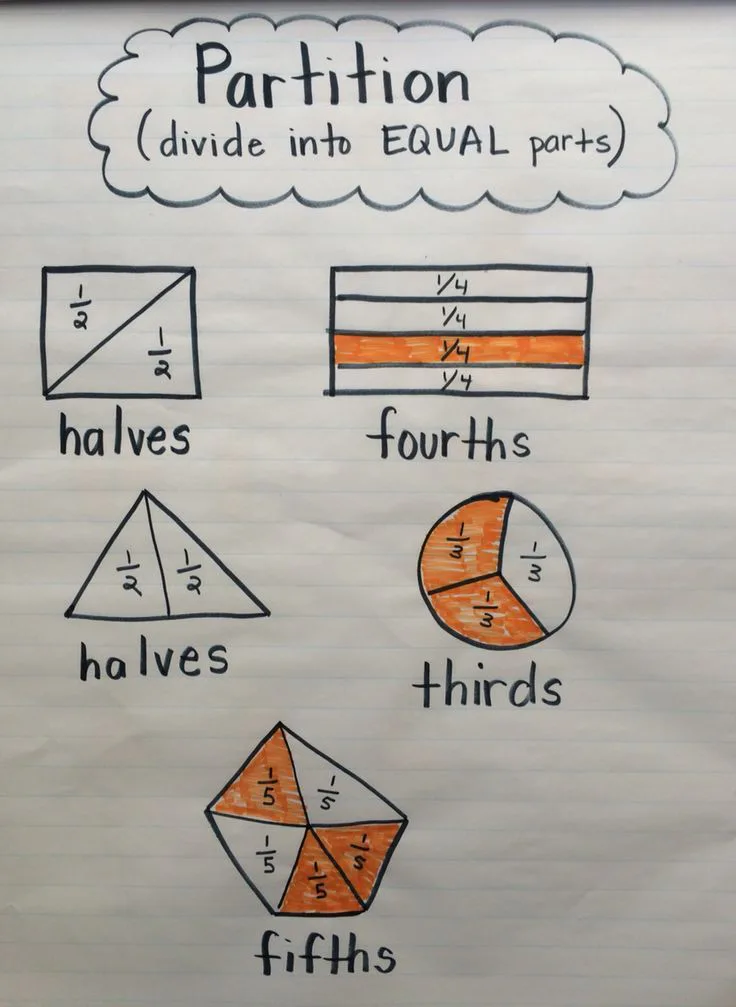 Partition
(divide into EQUAL parts)
1/2
1/2
halves
1/4
1/4
1/4
1/4
fourths
1/2 1/2
halves
1/3
1/3
1/3
thirds
1/5 1/5
1/5 1/5 1/5
fifths